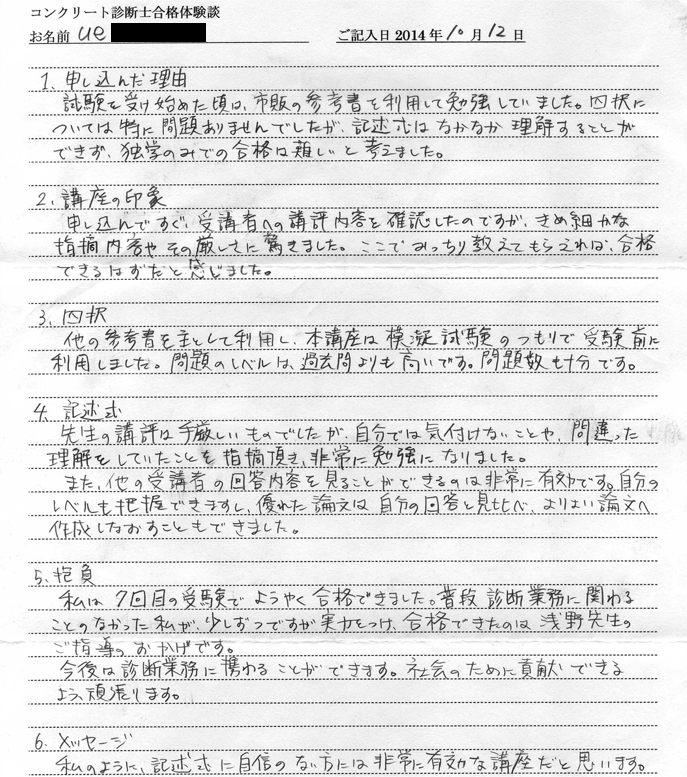 コンクリート診断士合格体験談
お名前 ue ご記入日 2014 年 10 月 12 日
1. 申し込んだ理由
試験を受け始めた頃は、市販の参考書を利用して勉強していました。四択に
ついては特に問題ありませんでしたが、記述式はなかなか理解することが
できず、独学のみでの合格は難しいと考えました。
2. 講座の印象
申し込んですぐ、受講者への講評内容を確認したのですが、きめ細かな
指摘内容やその厳しさに驚きました。ここでみっちり教えてもらえれば、合格
できるはずだと感じました。
3. 四択
他の参考書を主として利用し、本講座は模擬試験のつもりで受験前に
利用しました。問題のレベルは、過去問よりも高いです。問題数も十分です。
4. 記述式
先生の講評は手厳しいものでしたが、自分では気付けないことや、間違った
理解をしていたことを指摘頂き、非常に勉強になりました。
また、他の受講者の回答内容を見ることができるのは非常に有効です。自分の
レベルも把握できますし、優れた論文は自分の回答と見比べ、よりよい論文へ
作成しなおすこともできました。
5. 抱負
私は7回目の受験でようやく合格できました。普段診断業務に関わる
ことのなかった私が、少しずつですが実力をつけ、合格できたのは浅野先生の
ご指導のおかげです。
今後は診断業務に携わることができます。社会のために貢献できる
よう、頑張ります。
6. メッセージ
私のように、記述式に自信のない方には非常に有効な講座だと思います。